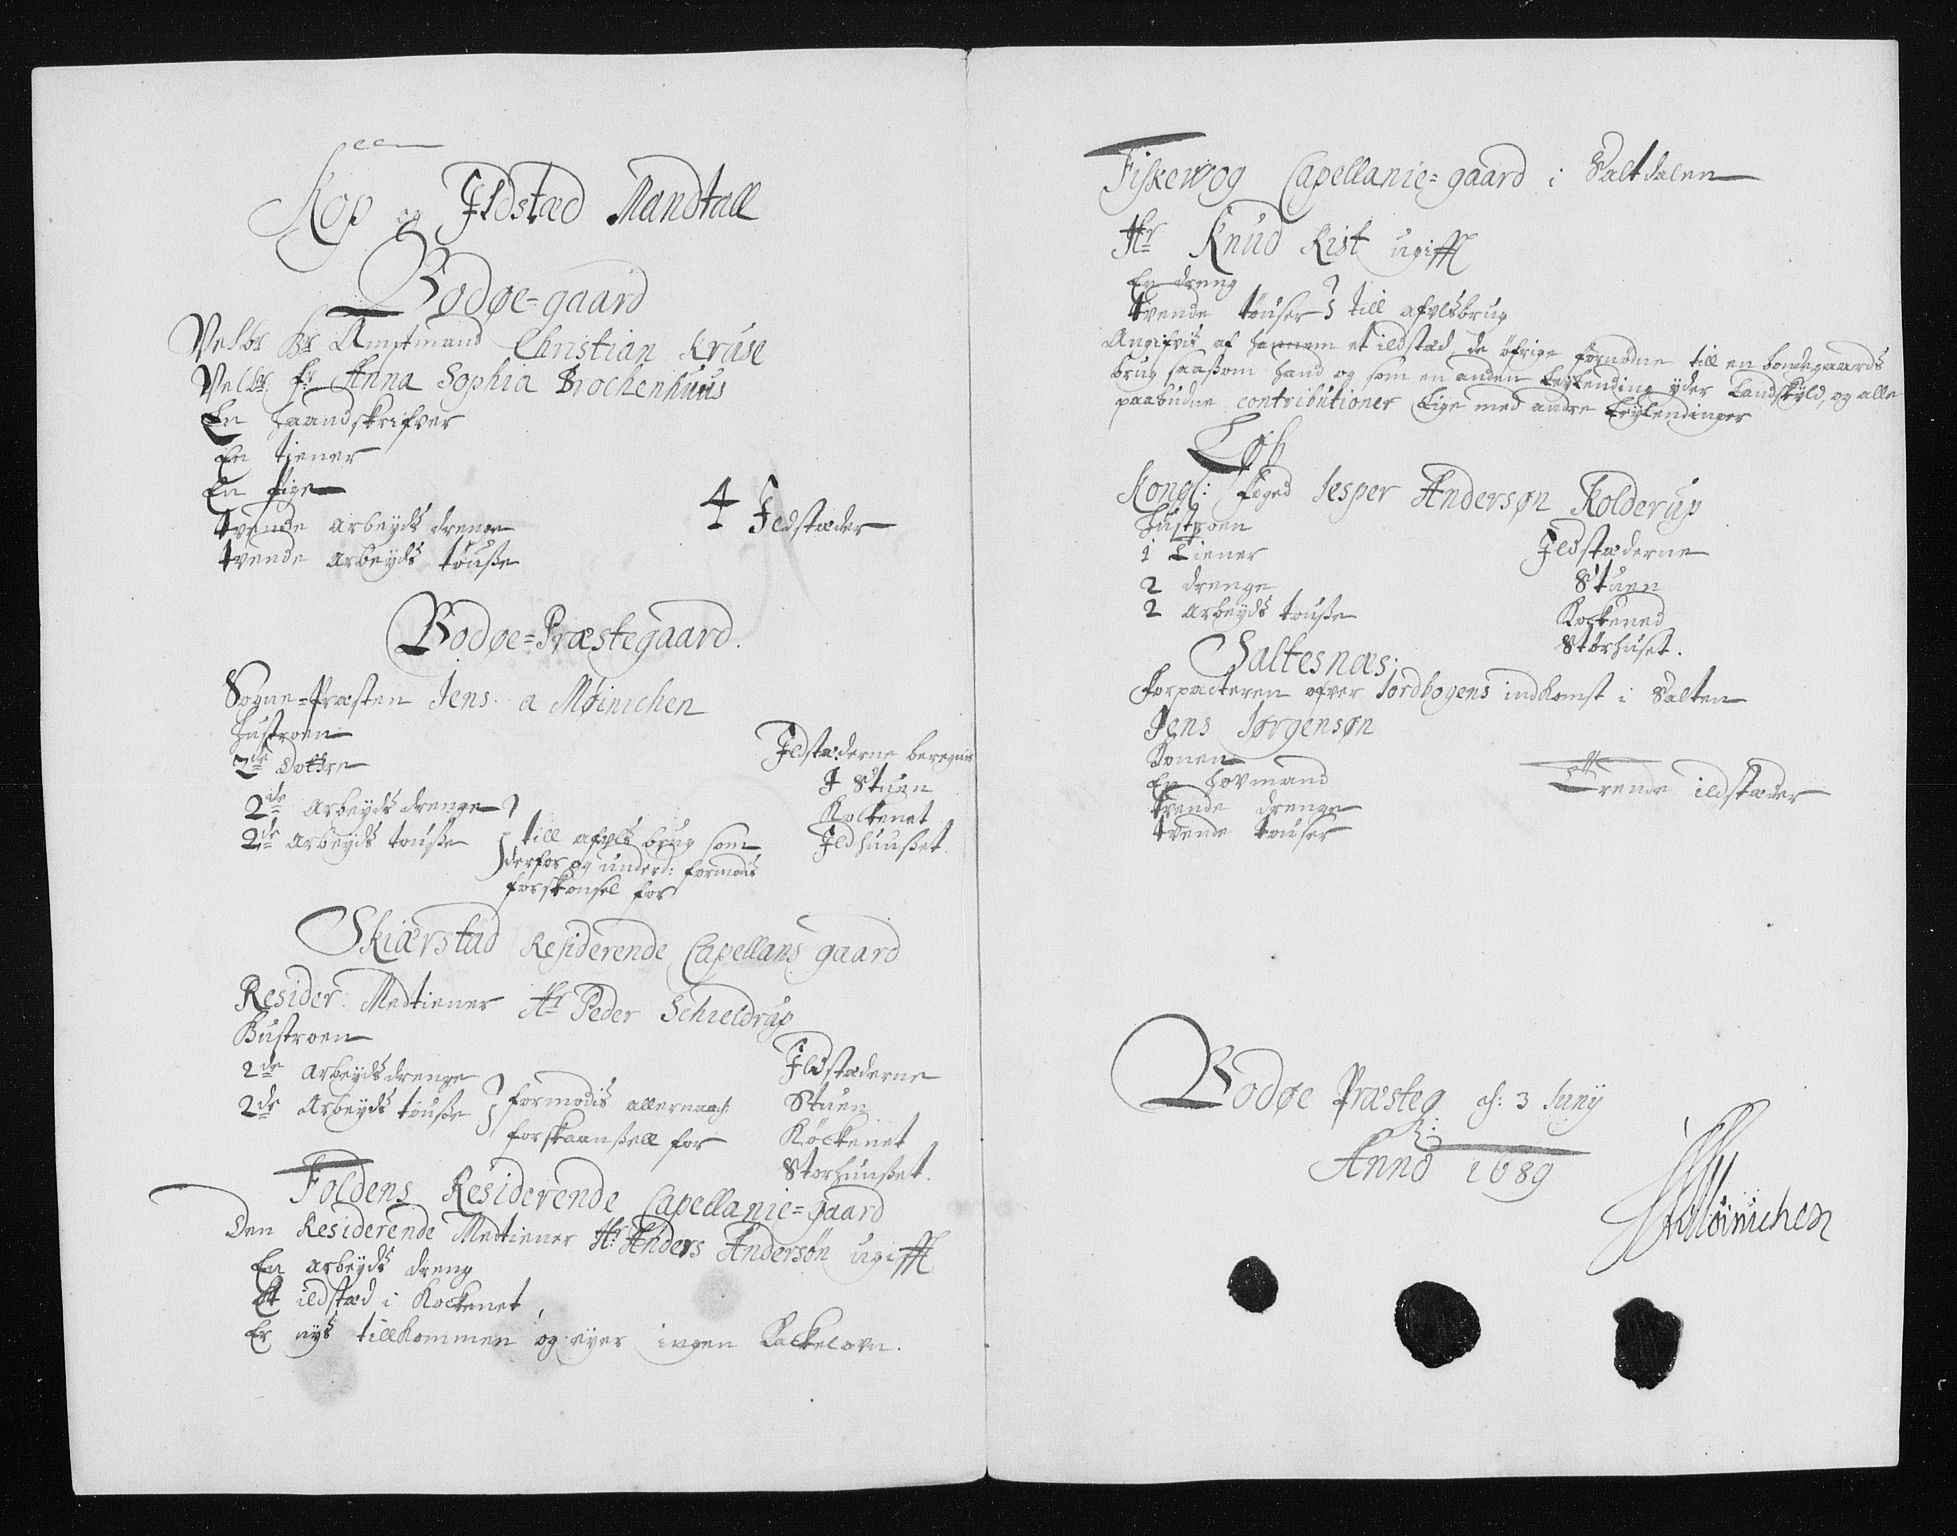 Kop og Ildstæd Mandtall
Bodøe-gaard
Velbr Hr Amptmand Christian Kruse
Velbr Fr Anna Sophia Brochenhuus
En Haandskrifver
En tiener
En pige
tvende arbeyds drenge
tvende arbeyds töusße
4 Ildstæder
Bodøe-Præstegaard.
Sogne-Præsten Jens a Møinichen
Hustroen
2de Døttre
2de arbeyds drenge
2de arbeyds tousße
till afvels brug som
derfor og underd: formodis
forskonsel for
Ildstæderne beregnis
I Stuen
Kockenet
Ildhuusßet
Skiærstad Residerende Capellans gaard
Resider: Medtiener Hr Peder Schieldrup
Hustroen
2de arbeyds drenge
2de Arbeyds tousße
formodis allernaad:
forskaansßell for
Ildstæderne
Stuen
Køckenet
Storhuusßet.
Foldens Residerende Capellanie-gaard
Den Residerende Medtiener Hr Anders Andersøn ugifft
En arbeyds dreng
Et ildstæd i Kockenet
Er nys tillkommen og eyer ingen Kackelovn.
Fiskewog Capellanie-gaard i Saltdalen
Hr Knud Rist ugifft
En dreng
tvende töuser till afvelsbrug
Angifvis af hannem et ildstæd de øfrige fornødne till en bondegaards
brug saasßom hand og som en anden Leylending yder Landskyld, og alle
paabudne contributioner Lige med andre Leylendinger
Løb
Kongl: Foged Jesper Andersøn Kolderup
Hustroen
1 Tiener
2 drenge
2 arbeyds tousße
Ildstæderne
Stuen
Kockened
Størhuset.
Saltesnæs.
Forpacteren ofver Jordbogens indkomst i Salten
Jens Jørgensøn
Konen
En Hovmand
tvende drenge
tvende touser
Trende ildstæder
Bodøe Præsteg d: 3 Juny
Anno 1689
JAMøinichen